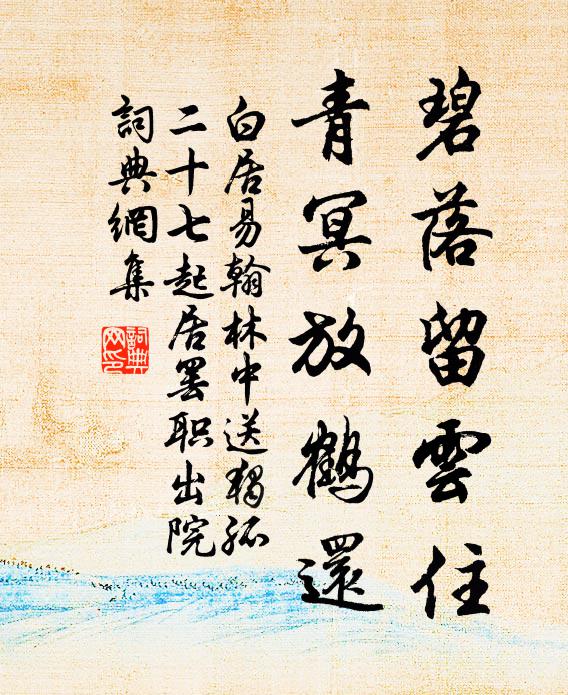 碧落留雲住
青冥放鶴還
白居易翰林中送獨孤
二十七起居罢职出院
詞典網集
詞典
网印